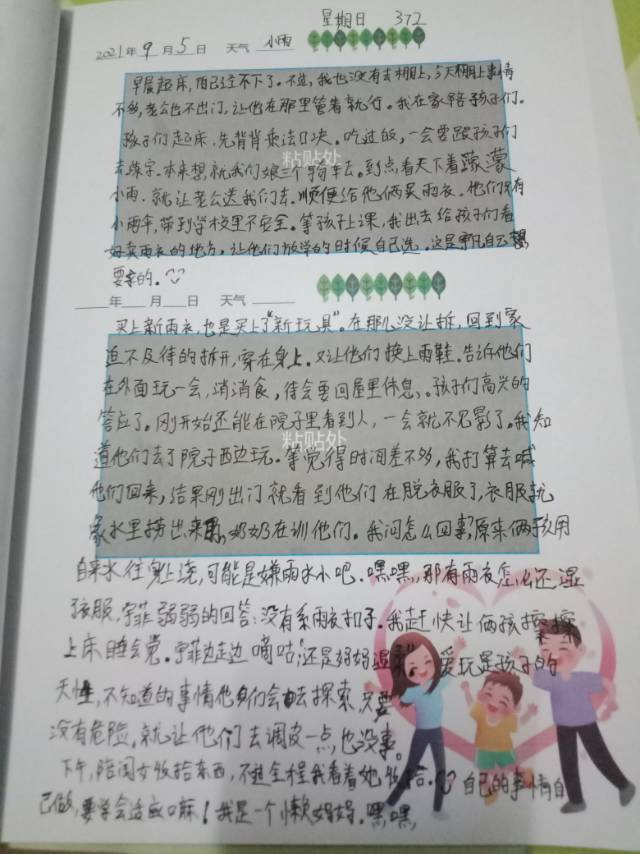 星期日 372
2021年9月5日 天气 小雨
早晨起床,自己经不下了。不过,我也没有去棚上,今天棚上事情
不多,老公也不出门,让他在那里管着就行。我在家陪孩子们。
孩子们起床,先背背乘法口决。吃过饭,一会要跟孩子们
去练字。本来想就我们娘三个骑车去。到点看天下着蒙蒙
小雨,就让老公送我们去。顺便给他俩买雨衣。他们只有
小雨伞,带到学校里不安全。等孩子上课,我出去给孩子们看
好卖雨衣的地方,让他们放学的时候自己选。这是自己想
要的。
年 月 日 天气
买上新雨衣,也是买上了“新玩具”。在那儿没让拆,回到家
迫不及待的拆开,穿在身上。又让他们换上雨鞋。告诉他们
在外面玩一会,消消食,待会要回屋里休息、。孩子们高兴的
答应了。刚开始还能在院子里看到人,一会就不见影了。我知
道他们去了院子西边玩。等觉得时间差不多,我打算去喊
他们回来,结果刚出门就看到他们在脱衣服了,衣服就
象水里捞出来,奶奶在训他们。我问怎么回事,原来俩孩用
自来水往身上浇,可能是嫌雨水小吧。嘿嘿,那有雨衣怎么还湿
了衣服,弱弱的回答:没有系雨衣扣子。我赶快让俩孩擦擦
上床睡会觉。边走边嘀咕:“还是妈妈温柔”爱玩是孩子的
天性,不知道的事情他们会去探索,只要
没有危险,就让他们去调皮一点也没事。
下午,陪闺女收拾东西,不过全程我看着她收拾。自己的事情自
己做,要学会适应嘛!我是一个懒妈妈。嘿嘿,
粘贴处
粘贴处